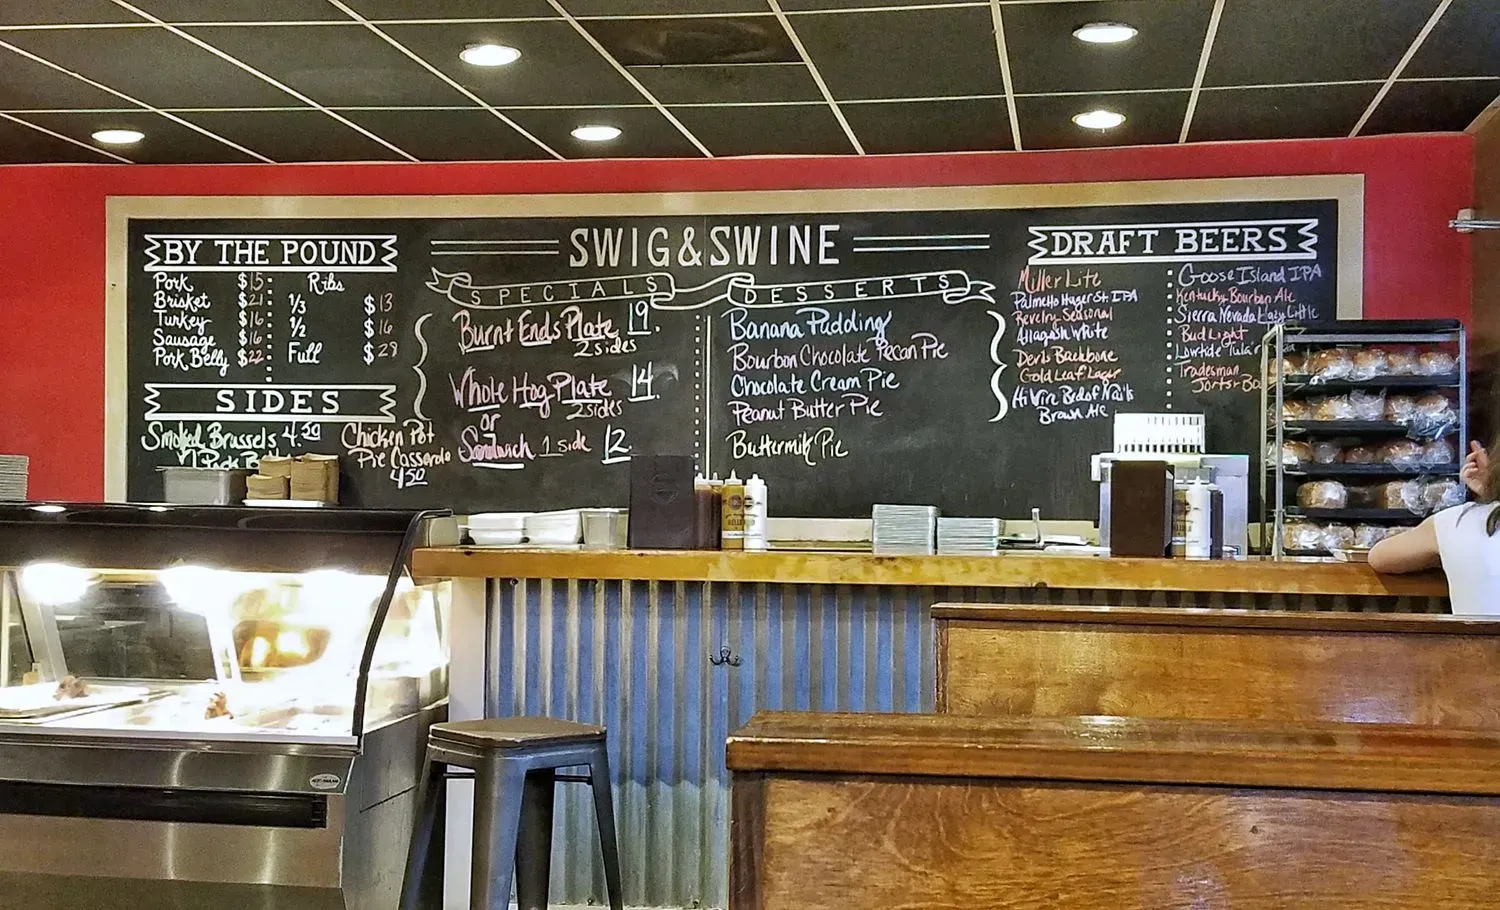 SWIG&SWINE
BY THE POUND
Pork $15
Brisket $21
Turkey $16
Sausage $16
Pork Belly $22
Ribs
1/3 $13
1/2 $16
Full $28
SIDES
Smoked Brussels 4.50
Chicken Pot
Pie Casserole
4.50
SPECIALS
Burnt Ends Plate 19.
2 sides
Whole Hog Plate 14.
2 sides
or
Sandwich 1 side 12.
DESSERTS
Banana Pudding
Bourbon Chocolate Pecan Pie
Chocolate Cream Pie
Peanut Butter Pie
Buttermilk Pie
DRAFT BEERS
Miller Lite
Palmetto Huger St IPA
Revelry Seasonal
Allagash White
Devils Backbone
Gold Leaf Lager
Hi Wire Bed of Nails
Brown Ale
Goose Island IPA
Kentucky Bourbon Ale
Sierra Nevada Hazy Little
Bud Light
Lowtide
Tradesman